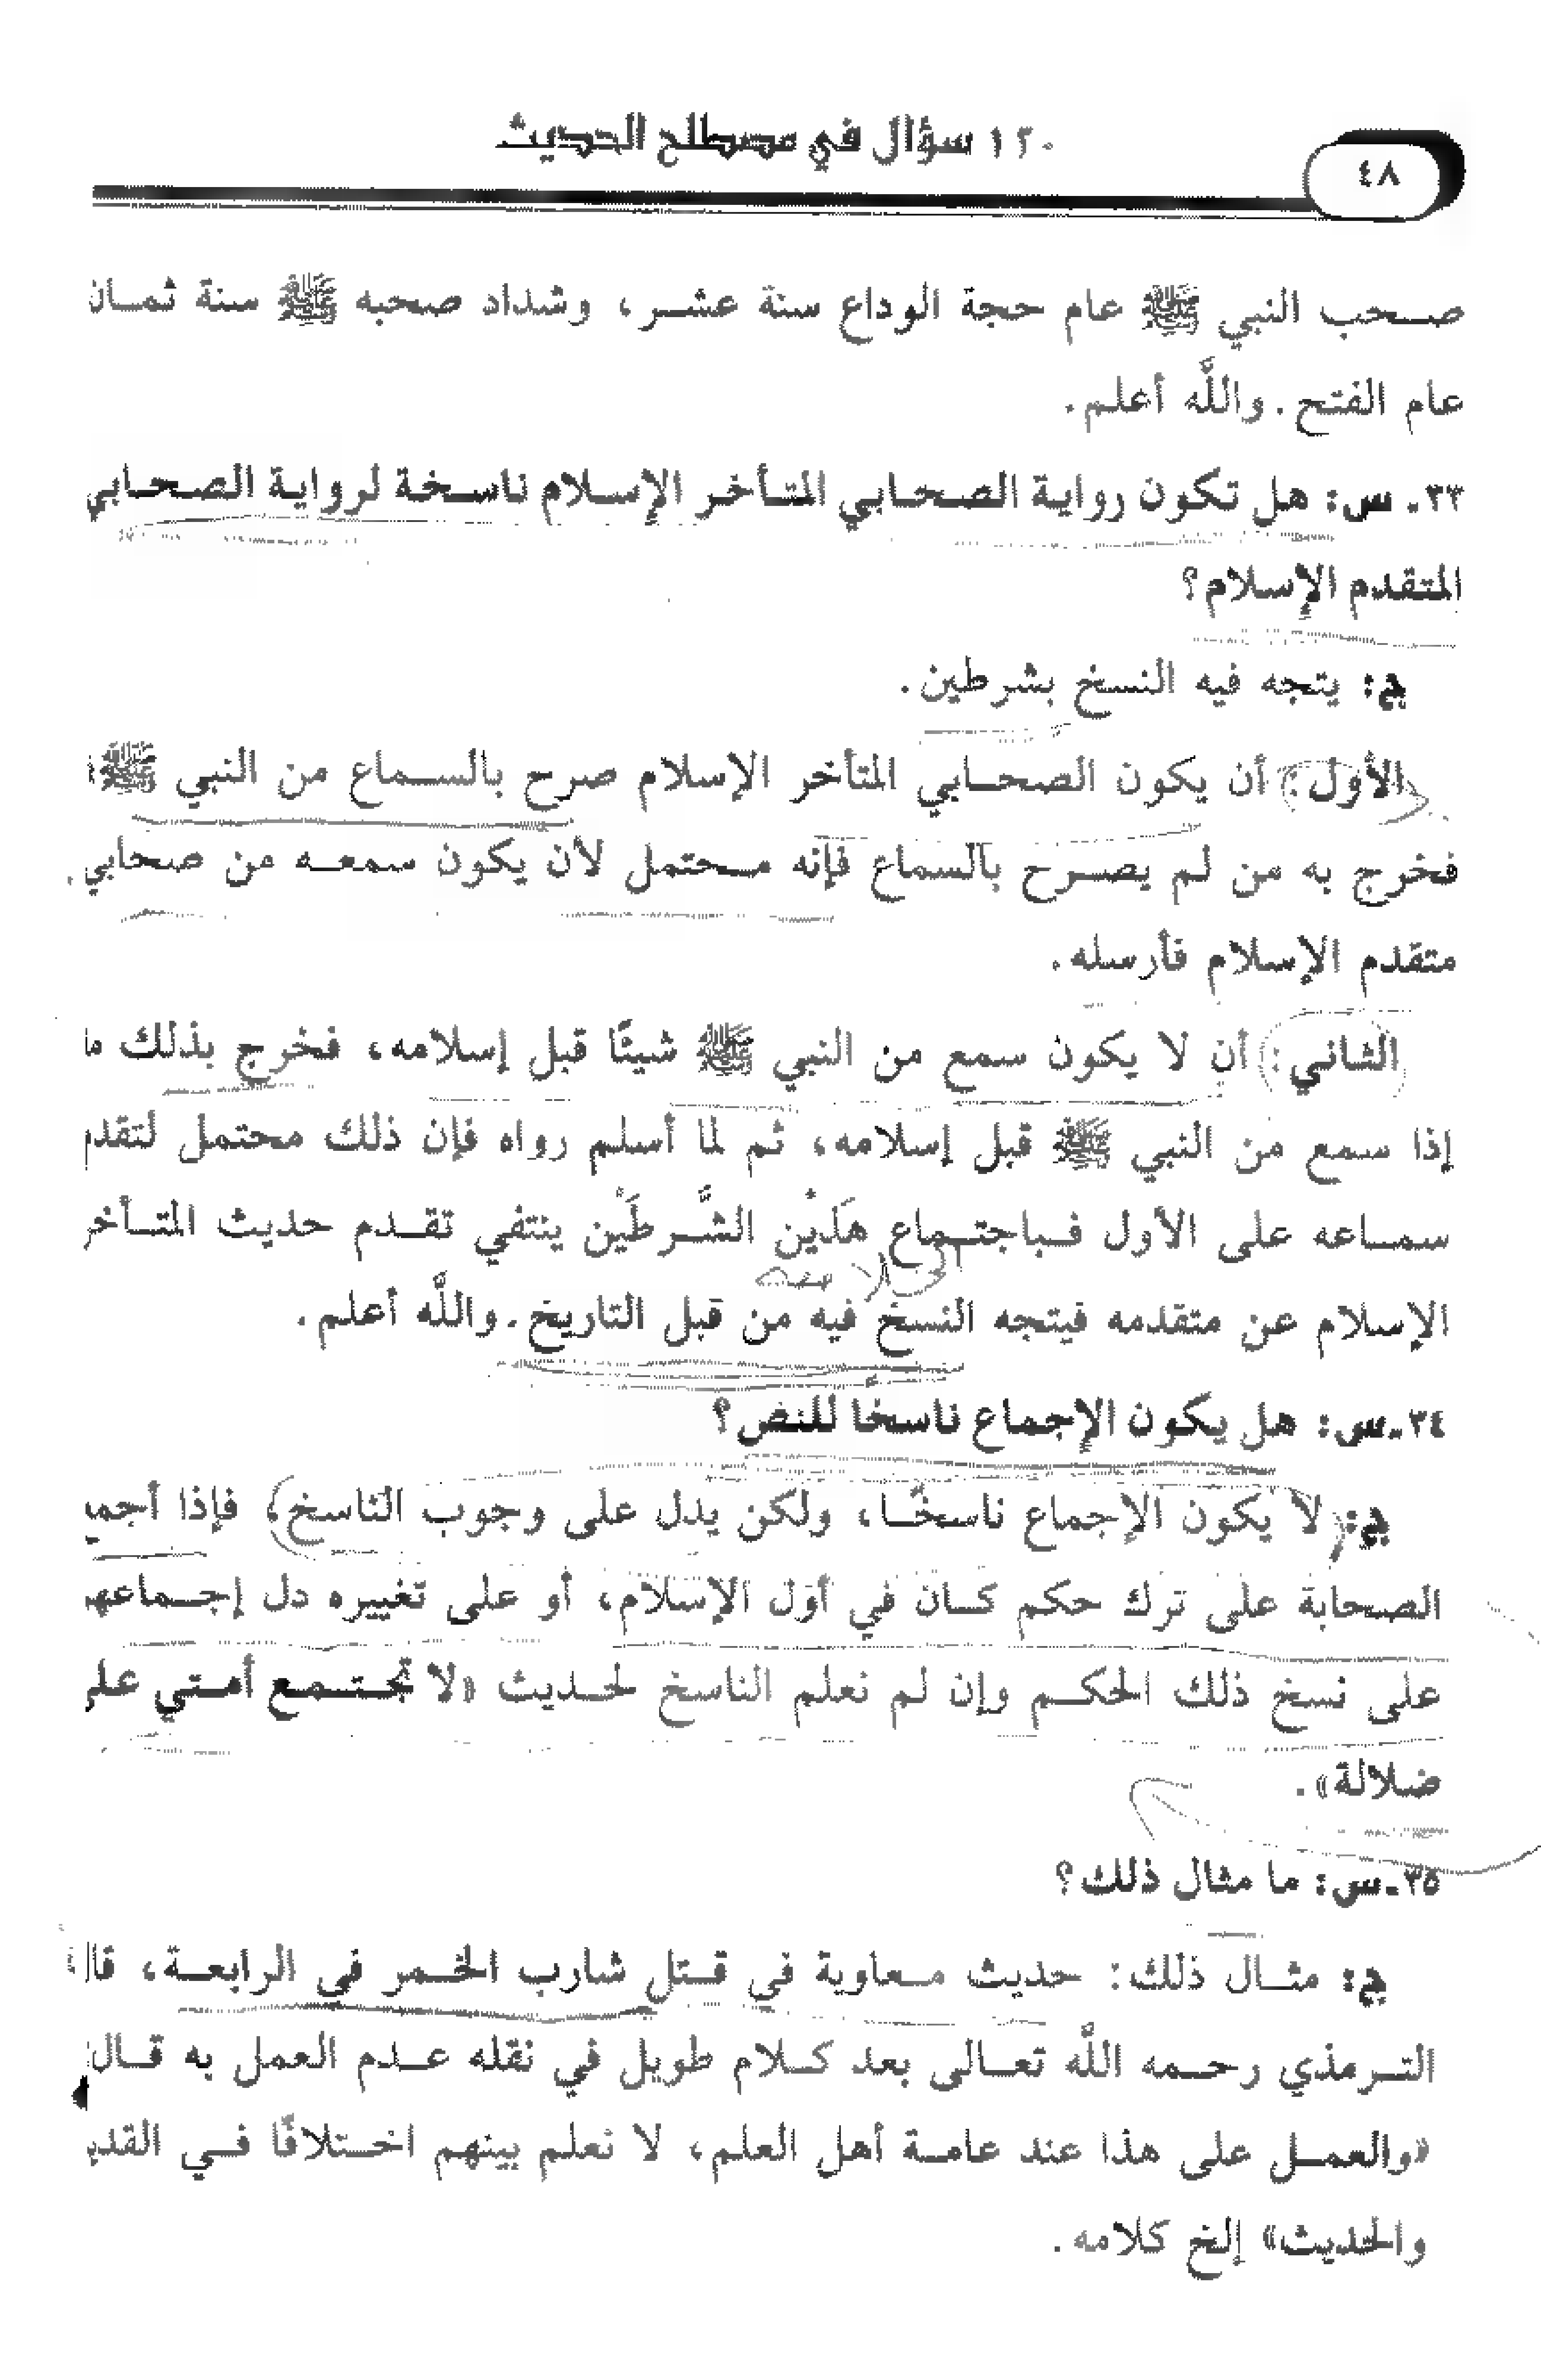 ١٢٠ سؤال في مصطلح الحديث
٤٨
صحب النبي ﷺ عام حجة الوداع سنة عشر، وشداد صحبه ﷺ سنة ثمان
عام الفتح. واللَّه أعلم.
٣٣ـ س: هل تكون رواية الصحابي المتأخر الإسلام ناسخة لرواية الصحابي
المتقدم الإسلام؟
ج: يتجه فيه النسخ بشرطين.
الأول: أن يكون الصحابي المتأخر الإسلام صرح بالسماع من النبي ﷺ
فخرج به من لم يصرح بالسماع فإنه محتمل لأن يكون سمعه من صحابي
متقدم الإسلام فأرسله.
الثاني: أن لا يكون سمع من النبي ﷺ شيئًا قبل إسلامه، فخرج بذلك ما
إذا سمع من النبي ﷺ قبل إسلامه، ثم لما أسلم رواه فإن ذلك محتمل لتقدم
سماعه على الأول فباجتماع هَذَيْن الشَّرطَيْن ينتفي تقدم حديث المتأخر
الإسلام عن متقدمه فيتجه النسخ فيه من قبل التاريخ. واللَّه أعلم.
٣٤ـس: هل يكون الإجماع ناسخًا للنص؟
ج: لا يكون الإجماع ناسخًا، ولكن يدل على وجوب الناسخ، فإذا أجمع
الصحابة على ترك حكم كان في أول الإسلام، أو على تغييره دل إجماعهم
على نسخ ذلك الحكم وإن لم نعلم الناسخ لحديث «لا تجتمع أمتي على
ضلالة».
٣٥ـس: ما مثال ذلك؟
ج: مثال ذلك: حديث معاوية في قتل شارب الخمر في الرابعة، قال
الترمذي رحمه اللَّه تعالى بعد كلام طويل في نقله عدم العمل به قال
«والعمل على هذا عند عامة أهل العلم، لا نعلم بينهم اختلافًا في القديم
والحديث» إلخ كلامه.